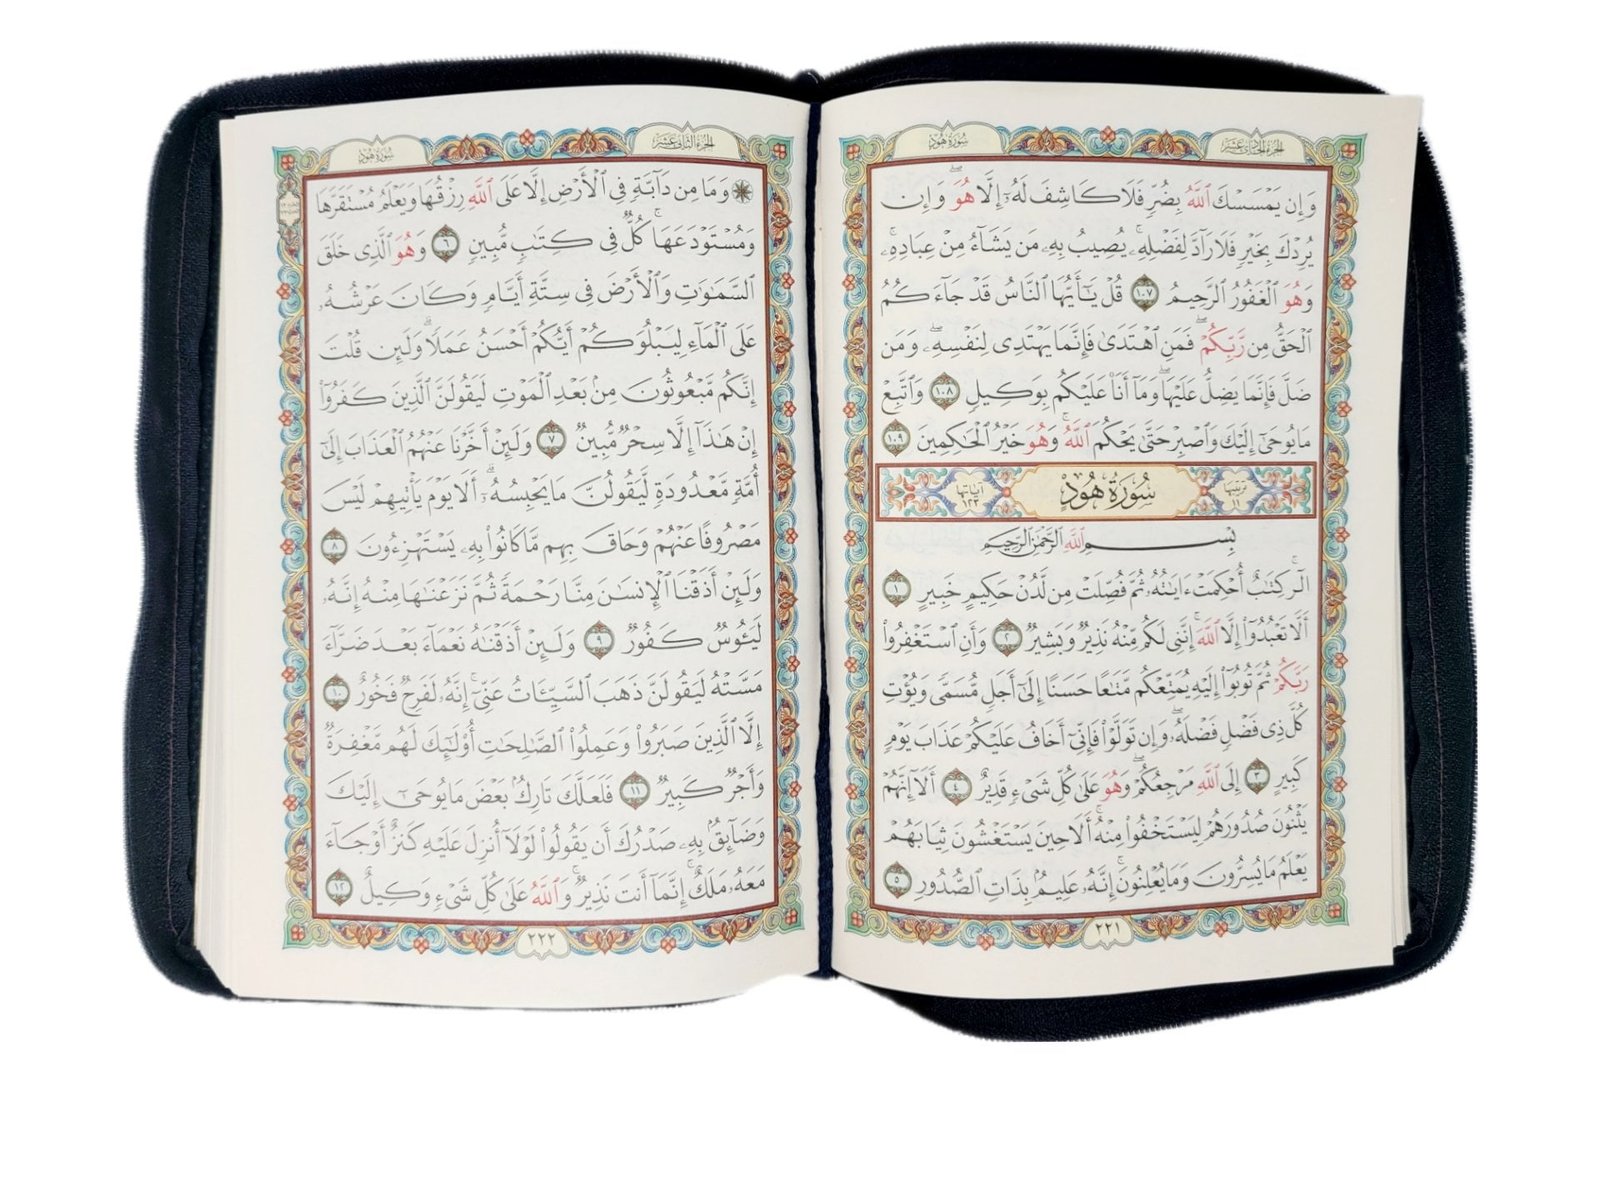 الجزء الحادي عشر
سورة هود
وَإِن يَمْسَسْكَ ٱللَّهُ بِضُرٍّ فَلَا كَاشِفَ لَهُۥٓ إِلَّا هُوَۖ وَإِن
يُرِدْكَ بِخَيْرٍ فَلَا رَآدَّ لِفَضْلِهِۦۚ يُصِيبُ بِهِۦ مَن يَشَآءُ مِنْ عِبَادِهِۦۚ
وَهُوَ ٱلْغَفُورُ ٱلرَّحِيمُ ١٠٧ قُلْ يَـٰٓأَيُّهَا ٱلنَّاسُ قَدْ جَآءَكُمُ
ٱلْحَقُّ مِن رَّبِّكُمْۖ فَمَنِ ٱهْتَدَىٰ فَإِنَّمَا يَهْتَدِى لِنَفْسِهِۦۖ وَمَن
ضَلَّ فَإِنَّمَا يَضِلُّ عَلَيْهَاۖ وَمَآ أَنَا۠ عَلَيْكُم بِوَكِيلٍ ١٠٨ وَٱتَّبِعْ
مَا يُوحَىٰٓ إِلَيْكَ وَٱصْبِرْ حَتَّىٰ يَحْكُمَ ٱللَّهُۚ وَهُوَ خَيْرُ ٱلْحَـٰكِمِينَ ١٠٩
ترتيبها ١١ سُورَةُ هُودٍ آياتها ١٢٣
بِسْمِ ٱللَّهِ ٱلرَّحْمَـٰنِ ٱلرَّحِيمِ
الٓرۚ كِتَـٰبٌ أُحْكِمَتْ ءَايَـٰتُهُۥ ثُمَّ فُصِّلَتْ مِن لَّدُنْ حَكِيمٍ خَبِيرٍ ١
أَلَّا تَعْبُدُوٓا۟ إِلَّا ٱللَّهَۚ إِنَّنِى لَكُم مِّنْهُ نَذِيرٌ وَبَشِيرٌ ٢ وَأَنِ ٱسْتَغْفِرُوا۟
رَبَّكُمْ ثُمَّ تُوبُوٓا۟ إِلَيْهِ يُمَتِّعْكُم مَّتَـٰعًا حَسَنًا إِلَىٰٓ أَجَلٍ مُّسَمًّى وَيُؤْتِ
كُلَّ ذِى فَضْلٍ فَضْلَهُۥۖ وَإِن تَوَلَّوْا۟ فَإِنِّىٓ أَخَافُ عَلَيْكُمْ عَذَابَ يَوْمٍ
كَبِيرٍ ٣ إِلَى ٱللَّهِ مَرْجِعُكُمْۖ وَهُوَ عَلَىٰ كُلِّ شَىْءٍ قَدِيرٌ ٤ أَلَآ إِنَّهُمْ
يَثْنُونَ صُدُورَهُمْ لِيَسْتَخْفُوا۟ مِنْهُۚ أَلَا حِينَ يَسْتَغْشُونَ ثِيَابَهُمْ
يَعْلَمُ مَا يُسِرُّونَ وَمَا يُعْلِنُونَۚ إِنَّهُۥ عَلِيمٌۢ بِذَاتِ ٱلصُّدُورِ ٥
٢٢١
الجزء الثاني عشر
سورة هود
وَمَا مِن دَآبَّةٍ فِى ٱلْأَرْضِ إِلَّا عَلَى ٱللَّهِ رِزْقُهَا وَيَعْلَمُ مُسْتَقَرَّهَا
وَمُسْتَوْدَعَهَاۚ كُلٌّ فِى كِتَـٰبٍ مُّبِينٍ ٦ وَهُوَ ٱلَّذِى خَلَقَ
ٱلسَّمَـٰوَٰتِ وَٱلْأَرْضَ فِى سِتَّةِ أَيَّامٍ وَكَانَ عَرْشُهُۥ
عَلَى ٱلْمَآءِ لِيَبْلُوَكُمْ أَيُّكُمْ أَحْسَنُ عَمَلًاۗ وَلَئِن قُلْتَ
إِنَّكُم مَّبْعُوثُونَ مِنۢ بَعْدِ ٱلْمَوْتِ لَيَقُولَنَّ ٱلَّذِينَ كَفَرُوٓا۟
إِنْ هَـٰذَآ إِلَّا سِحْرٌ مُّبِينٌ ٧ وَلَئِنْ أَخَّرْنَا عَنْهُمُ ٱلْعَذَابَ إِلَىٰٓ
أُمَّةٍ مَّعْدُودَةٍ لَّيَقُولُنَّ مَا يَحْبِسُهُۥٓۗ أَلَا يَوْمَ يَأْتِيهِمْ لَيْسَ
مَصْرُوفًا عَنْهُمْ وَحَاقَ بِهِم مَّا كَانُوا۟ بِهِۦ يَسْتَهْزِءُونَ ٨
وَلَئِنْ أَذَقْنَا ٱلْإِنسَـٰنَ مِنَّا رَحْمَةً ثُمَّ نَزَعْنَـٰهَا مِنْهُ إِنَّهُۥ
لَيَـُٔوسٌ كَفُورٌ ٩ وَلَئِنْ أَذَقْنَـٰهُ نَعْمَآءَ بَعْدَ ضَرَّآءَ
مَسَّتْهُ لَيَقُولَنَّ ذَهَبَ ٱلسَّيِّـَٔاتُ عَنِّىٓۚ إِنَّهُۥ لَفَرِحٌ فَخُورٌ ١٠
إِلَّا ٱلَّذِينَ صَبَرُوا۟ وَعَمِلُوا۟ ٱلصَّـٰلِحَـٰتِ أُو۟لَـٰٓئِكَ لَهُم مَّغْفِرَةٌ
وَأَجْرٌ كَبِيرٌ ١١ فَلَعَلَّكَ تَارِكٌۢ بَعْضَ مَا يُوحَىٰٓ إِلَيْكَ
وَضَآئِقٌۢ بِهِۦ صَدْرُكَ أَن يَقُولُوا۟ لَوْلَآ أُنزِلَ عَلَيْهِ كَنزٌ أَوْ جَآءَ
مَعَهُۥ مَلَكٌۚ إِنَّمَآ أَنتَ نَذِيرٌۚ وَٱللَّهُ عَلَىٰ كُلِّ شَىْءٍ وَكِيلٌ ١٢
٢٢٢